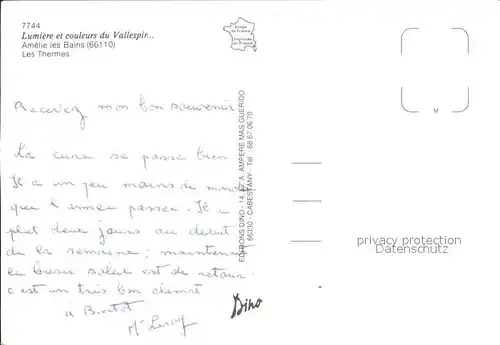 7744
Lumière et couleurs du Vallespir...
Amélie les Bains (66110)
Les Thermes
Recevez mon bon souvenir
La cure se passe bien
Il a un peu moins de monde
que l'année passée. Il a
plut deux jours au début
de la semaine, maintenant
le beau soleil est de retour
c'est un très bon climat
à Bientot
Mr Leroy
EDITIONS DINO - 14, AMPERE MAS GUERIDO
66330 - CABESTANY - Tél. 68 67 06 70
Dino
privacy protection
Datenschutz